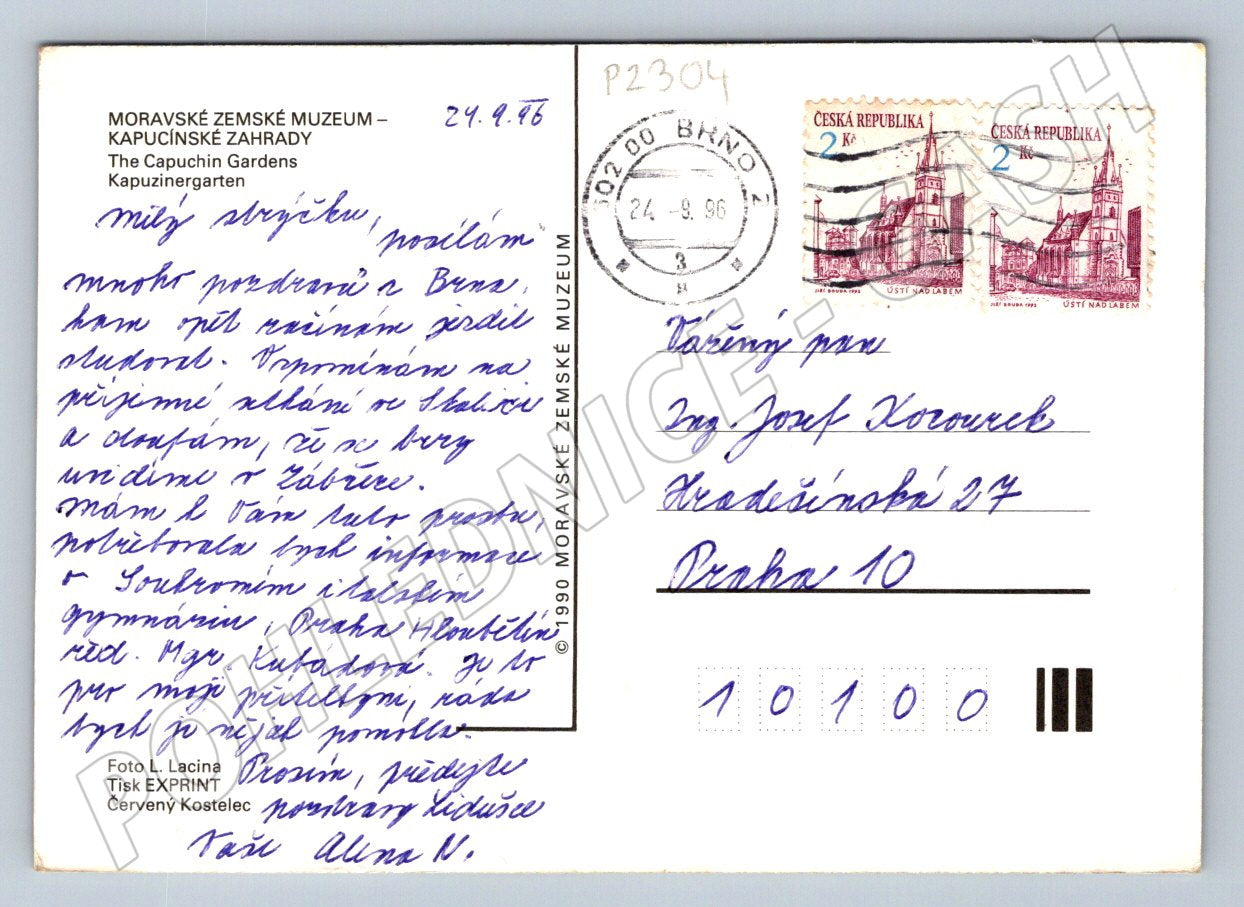 MORAVSKÉ ZEMSKÉ MUZEUM –
KAPUCÍNSKÉ ZAHRADY
The Capuchin Gardens
Kapuzinergarten
24.9.96
Milý strýčku,
posílám
mnoho pozdravů z Brna,
kam opět začínám jezdit
studovat. Vzpomínám na
příjemné setkání ve Skalici
a doufám, že se brzy
uvidíme v Zábřeze.
Mám k Vám tuto prosbu,
potřebovala bych informace
o Soukromém italském
gymnáziu, Praha Hloubětín
řed. Mgr. Kubádová. Je to
pro moji přítelkyni, ráda
bych jí nějak pomohla.
Prosím, předejte
pozdravy Lidušce
Vaše Alena N.
Foto L. Lacina
Tisk EXPRINT
Červený Kostelec
© 1990 MORAVSKÉ ZEMSKÉ MUZEUM
P2304
602 00 BRNO 2
24.-9.96
3
µ
ČESKÁ REPUBLIKA
2 Kč
JIŘÍ BOUDA 1993
ÚSTÍ NAD LABEM
ČESKÁ REPUBLIKA
2 Kč
JIŘÍ BOUDA 1993
ÚSTÍ NAD LABEM
Vážený pan
Ing. Josef Kocourek
Hradešínská 27
Praha 10
10100
POHLEDNICE - CASH